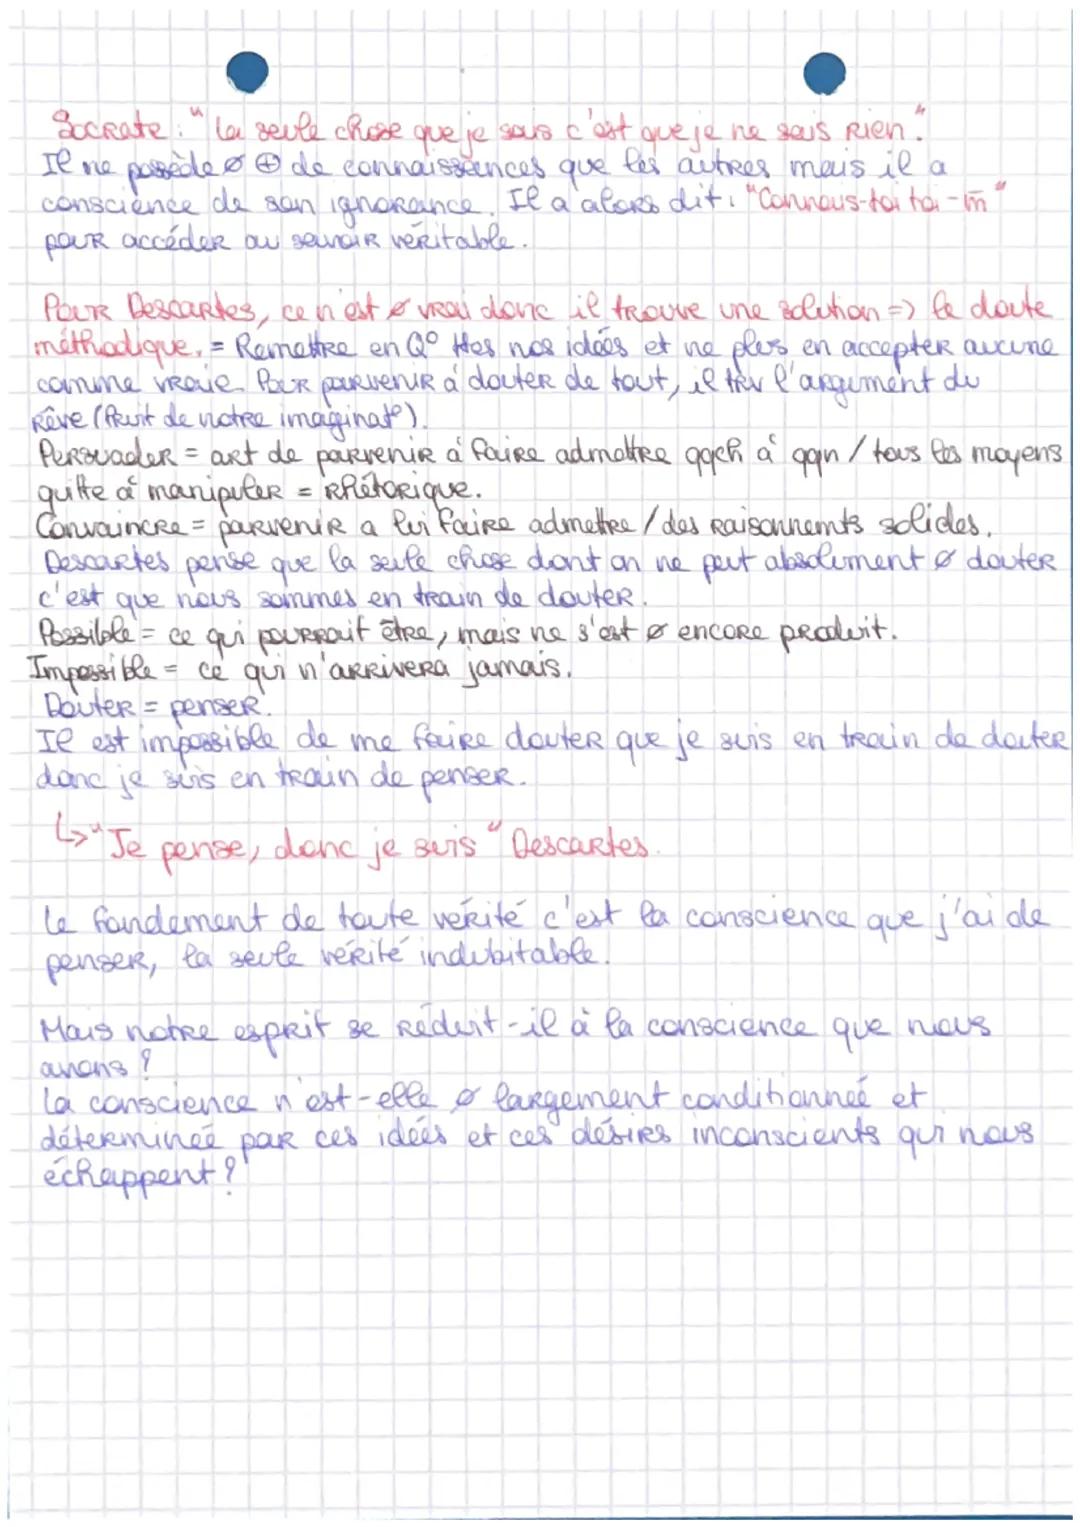 Socrate : "La seule chose que je sais c'est que je ne sais rien."
Il ne possède ø ⊕ de connaissances que les autres mais il a
conscience de son ignorance. Il a alors dit : "Connais-toi toi-m̄"
pour accéder au savoir véritable.
Pour Descartes, ce n'est ø vrai donc il trouve une solution => le doute
méthodique. = Remettre en Q° ttes nos idées et ne plus en accepter aucune
comme vraie. Pour parvenir à douter de tout, il trv l'argument du
rêve (fruit de notre imaginat°).
Persuader = art de parvenir à faire admettre qqch à qqn / tous les moyens
quitte à manipuler = rhétorique.
Convaincre = parvenir a lui faire admettre / des raisonnemts solides.
Descartes pense que la seule chose dont on ne peut absolument ø douter
c'est que nous sommes en train de douter.
Possible = ce qui pourrait être, mais ne s'est ø encore produit.
Impossible = ce qui n'arrivera jamais.
Douter = penser.
Il est impossible de me faire douter que je suis en train de douter
donc je suis en train de penser.
↳ "Je pense, donc je suis" Descartes.
Le fondement de toute vérité c'est la conscience que j'ai de
penser, la seule vérité indubitable.
Mais notre esprit se réduit-il à la conscience que nous
avons ?
La conscience n'est-elle ø largement conditionnée et
déterminée par ces idées et ces désirs inconscients qui nous
échappent ?